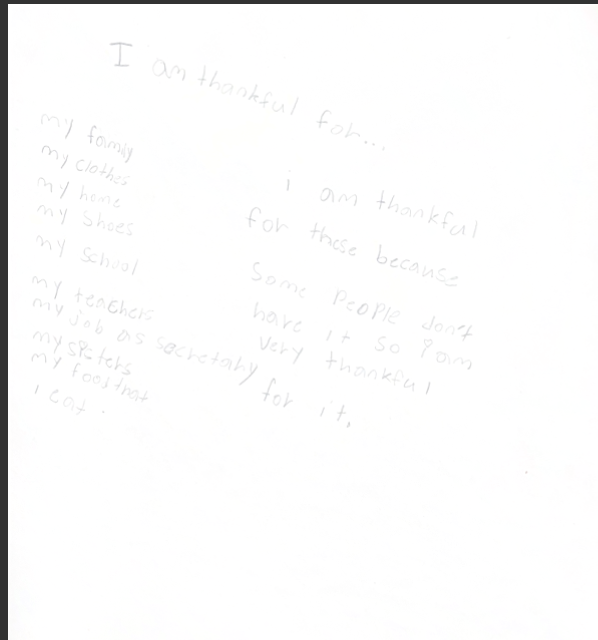 I am thankful for...
my family
my clothes
my home
my shoes
my school
my teachers
my job as secretary
my sisters
my food that
i eat.
i am thankful
for those because
Some PeoPle don't
have it so I am
very thankful
for it.